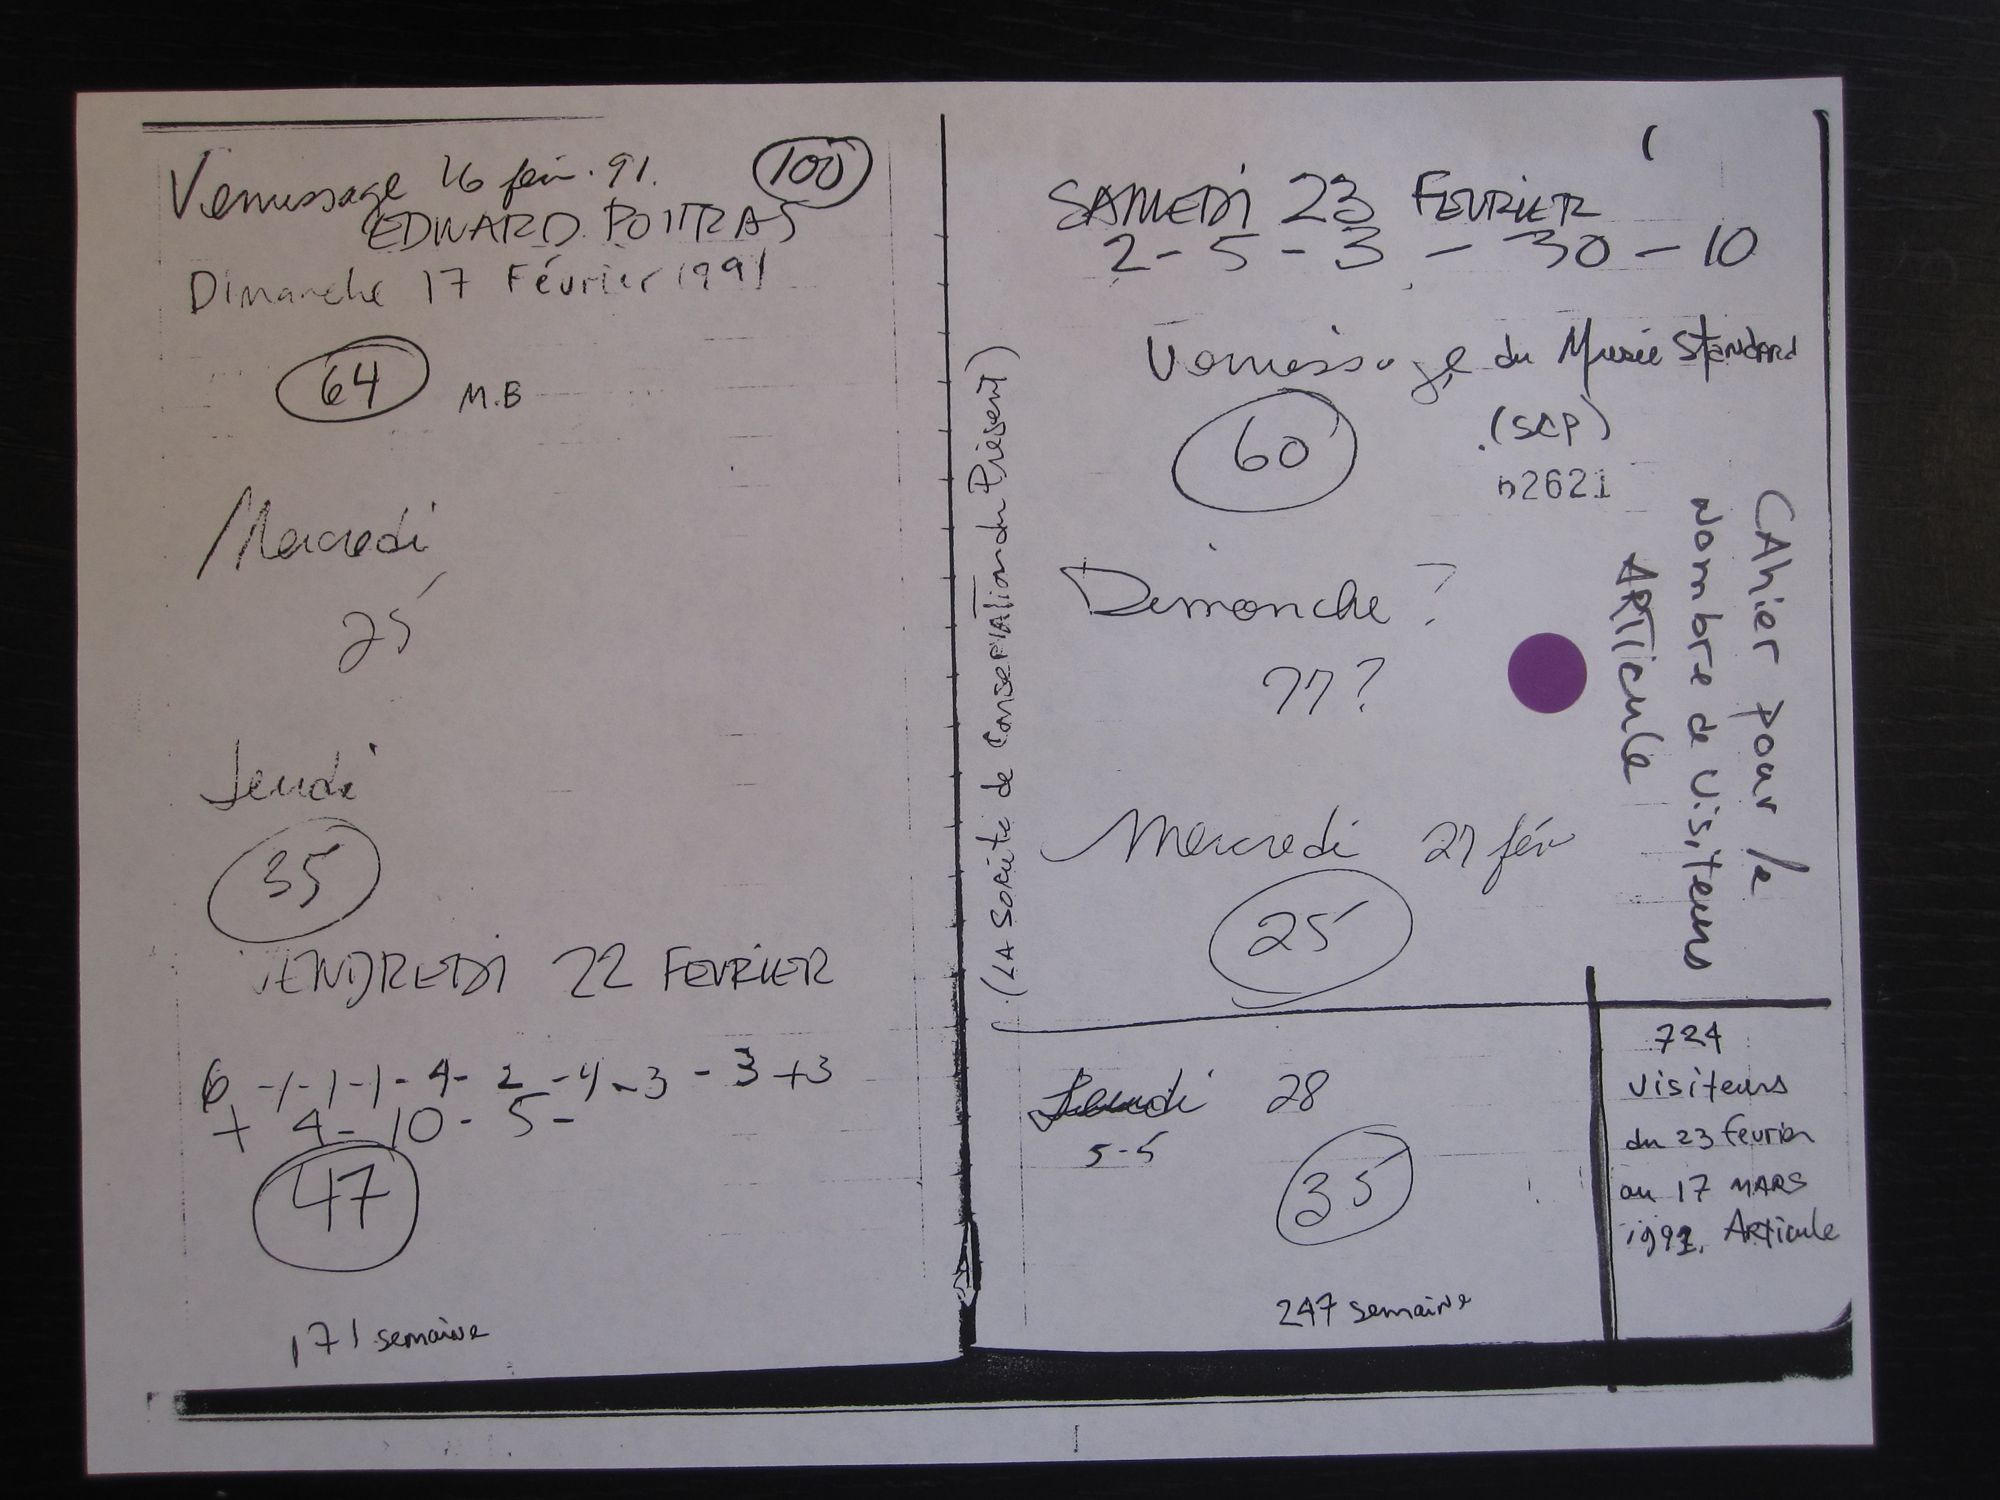 Vernissage 16 fév. 91. 100
EDWARD POITRAS
Dimanche 17 Février 1991
64 M.B
Mercredi
25
Jeudi
35
VENDREDI 22 FEVRIER
6 -1-1-1-4-2-4-3-3+3
+ 4-10-5-
47
171 semaine
(LA Société de Conservation du Présent)
SAMEDI 23 FEVRIER
2-5-3-30-10
Vernissage du Musée Standard
60 (SCP)
n2621
Dimanche ?
77?
Mercredi 27 fév
25
Jeudi 28
5-5
35
247 semaine
CAhier pour le
Nombre de Visiteurs
ARTicule
724
visiteurs
du 23 fevrier
au 17 MARS
1991. Articule